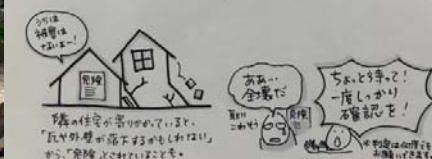 うちは
被害は
ないよー!
危険
隣の住宅が寄りかかっていると、
「瓦や外壁が落下するかもしれない」
から、「危険」とされていることも。
ああ…
全壊だ
取り
こわそう
危険
ちょっと待って!
一度しっかり
確認を!
※判定は何度でも
お願いできます